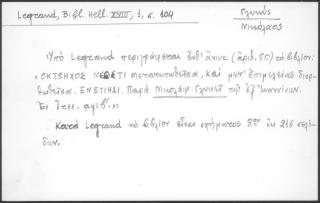 Legrand, Bibl. Hell. XVIII, 1, σ. 104
Γλυκύς
Νικόλαος
Ὑπὸ Legrand περιγράφεται (ἀριθ. 80) τὸ βιβλίον:
« ΟΚΤΩΗΧΟΣ μετατυπωθεῖσα, καὶ μετ' ἐπιμελείας διορ-
θωθεῖσα. ΕΝΕΤΙΗΣΙ. Παρὰ Νικολάῳ Γλυκεῖ τῷ ἐξ Ἰωαννίνων.
Ἐν ἔτει »
Κατὰ Legrand τὸ βιβλίον εἶναι σχήματος 8ον ἐκ 216 σελί-
δων.